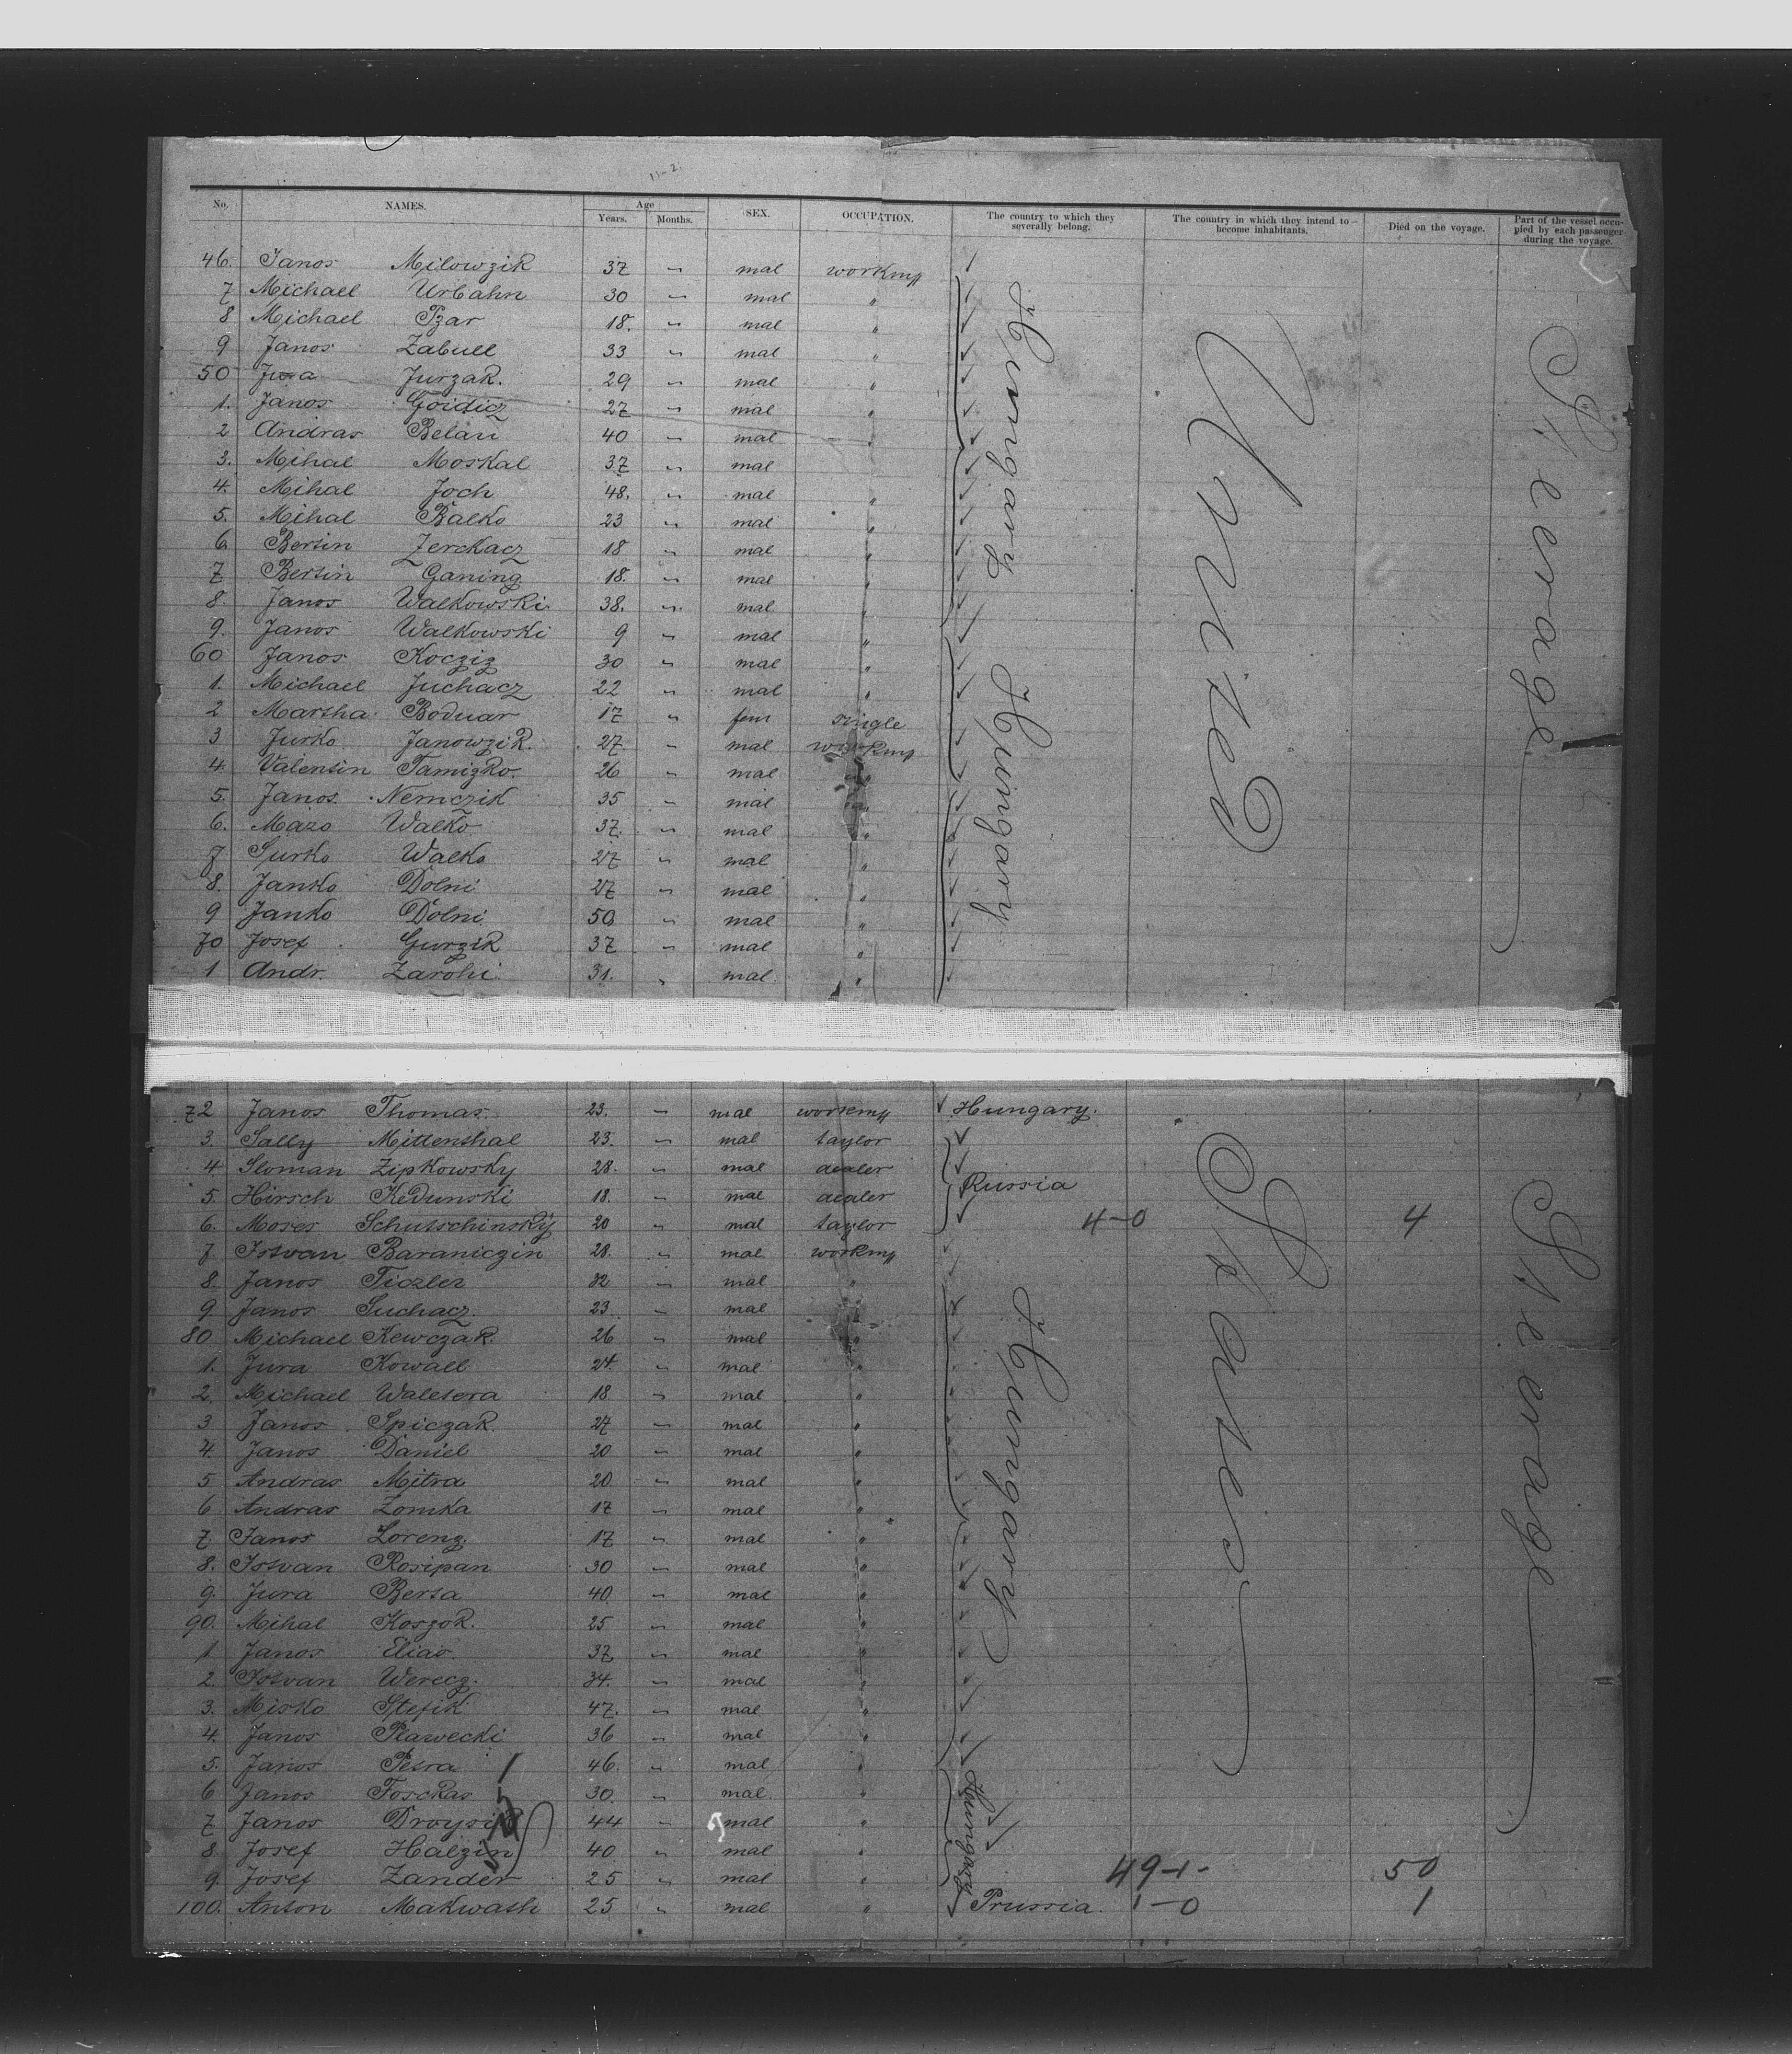 No. NAMES. Age Years. Months. SEX. OCCUPATION. The country to which they severally belong. The country in which they intend to become inhabitants. Died on the voyage. Part of the vessel occupied by each passenger during the voyage.
46. Janos Milowzik 37 " mal workmg
7 Michael Urbahn 30 " mal "
8 Michael Pzar 18. " mal "
9 Janos Zabull 33 " mal "
50 Jura Jurzak. 29 " mal "
1. Janos Goidicz 27 " mal "
2 Andras Belan 40 " mal "
3. Mihal Moskal 37 " mal
4. Mihal Joch 48. " mal "
5. Mihal Balko 23 " mal "
6 Bertin Zerckacz 18 " mal "
7 Bertin Ganing 18. " mal "
8. Janos Walkowski 38. " mal "
9. Janos Walkowski 9 " mal "
60 Janos Kocziz 30 " mal "
1. Michael Juchacz 22 " mal "
2 Martha Boduar 17 " fem single
3 Jurko Janowzik. 27 " mal workmg
4. Valentin Tamizko. 26 " mal "
5. Janos Nemczik 35 " mal "
6. Mazo Walko 37. " mal "
7 Jurko Walko 27 " mal "
8. Janko Dolni 27 " mal "
9 Janko Dolni 50 " mal "
70 Josef Gurzik 37 " mal "
1 Andr. Zarohi 31. " mal "
Hungary
Hungary
United
Steerage
72 Janos Thomas. 23. " mal workmg Hungary.
3. Sally Mittenthal 23. " mal taylor
4 Sloman Zipkowsky 28. " mal dealer
5. Hirsch Kedunski 18. " mal dealer Russia
6. Moses Schutschinsky 20 " mal taylor 4-0 4
7. Istvan Baraniczin 28. " mal workmg
8. Janos Ticzler 32 " mal "
9. Janos Suchacz. 23 " mal "
80 Michael Kewczak. 26 " mal "
1. Jura Kowall 24. " mal "
2. Michael Waletera 18 " mal "
3 Janos Spiczak. 27 " mal "
4. Janos Daniel 20 " mal "
5 Andras Mitra 20 " mal "
6 Andras Zomka 17 " mal "
7. Janos Lorenz. 17 " mal "
8. Istvan Rosipan 30 " mal "
9. Jura Berta 40 " mal "
90. Mihal Koszok. 25 " mal "
1 Janos Elias. 37 " mal "
2. Istvan Werecz. 34. " mal "
3. Misko Stefik 47. " mal "
4. Janos Plawecki 36 " mal "
5. Janos Petra 46. " mal "
6 Janos Tosckas 30. " mal. "
7 Janos 44 " mal "
8 Josef Halzin 40 " mal "
9. Josef Zander 25 " mal " 49-1- 50
100. Anton Makwath 25 " mal " Prussia. 1-0 1
Hungary
Hungary
States
Steerage